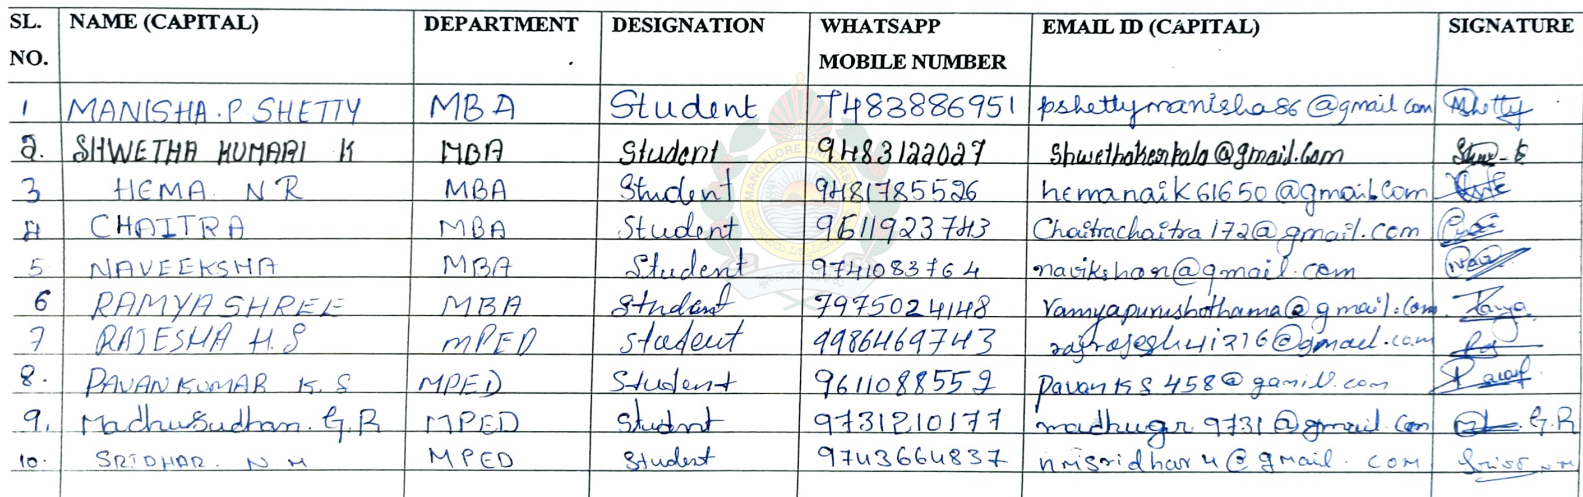 SL. NO. NAME (CAPITAL) DEPARTMENT DESIGNATION WHATSAPP MOBILE NUMBER EMAIL ID (CAPITAL) SIGNATURE
1 MANISHA.P SHETTY MBA Student 7483886951 pshettymanisha86@gmail.com Mshetty
2. SHWETHA KUMARI K MBA Student 9483122027 Shwethakenkala@gmail.com
3 HEMA. N R MBA Student 9481785526 hemanaik61650@gmail.com
4 CHAITRA MBA Student 9611923743 Chaitrachaitra172@gmail.com
5 NAVEEKSHA MBA Student 9741083764 navikshan@gmail.com
6 RAMYASHREE MBA Student 7975024148 ramyapurushothama@gmail.com
7 RAJESHA H.S MPED student 9986469743 rajrajesh41216@gmail.com
8. PAVANKUMAR K.S MPED Student 9611088552 pavanks458@gamil.com
9. Madhusudhan. G.R MPED Student 9731210177 madhugr.9731@gmail.com G.R
10. SRIDHAR. N M MPED Student 9743664837 nmsridhar4@gmail.com